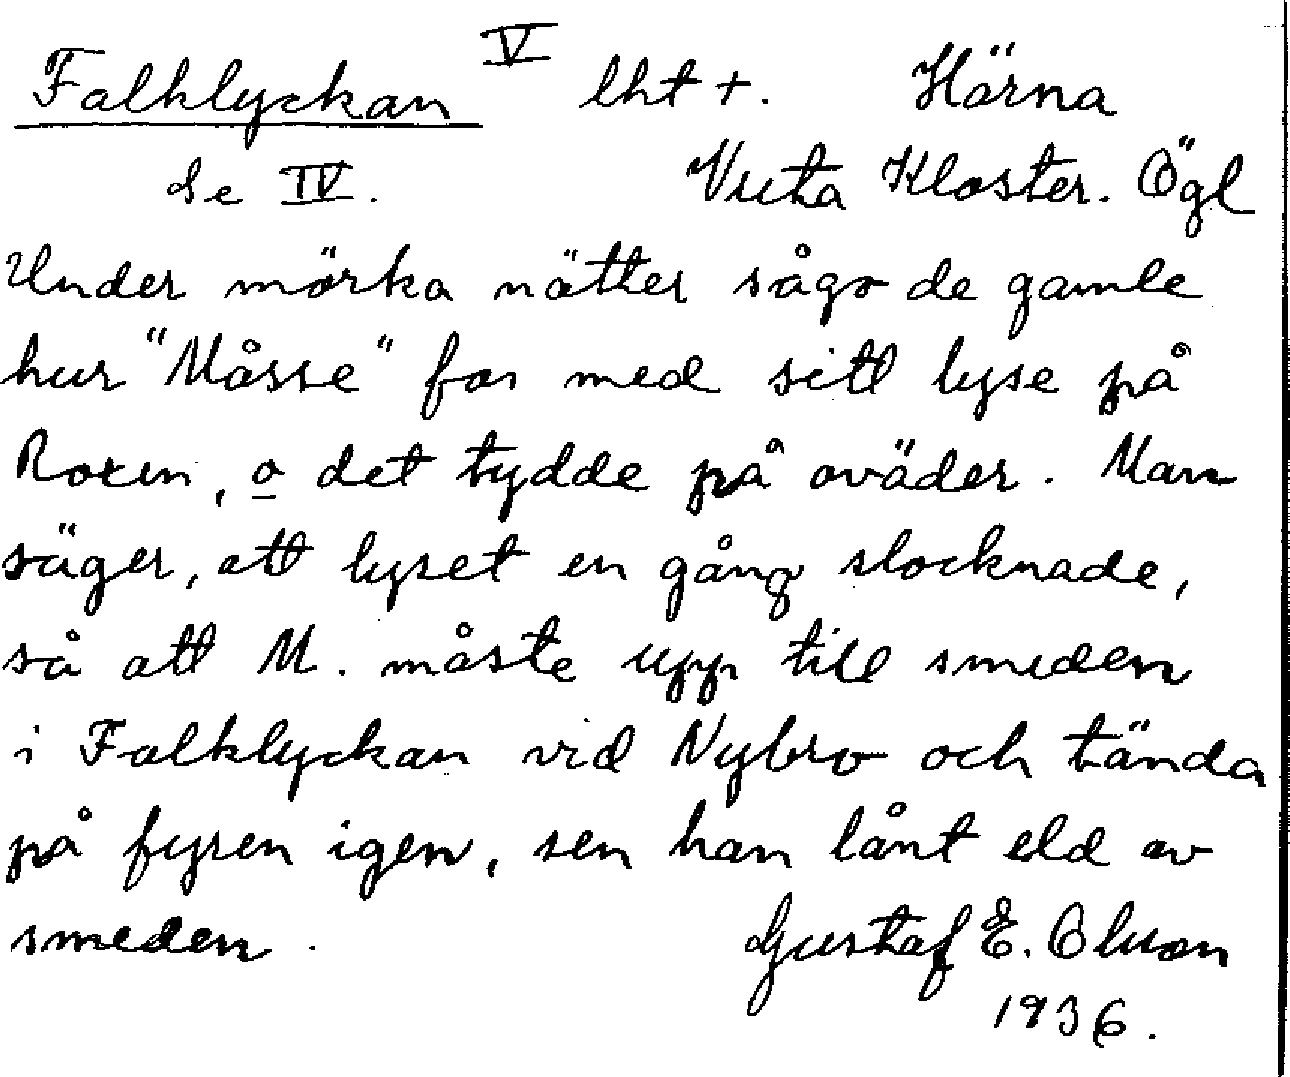 Falklyckan V lht +. Härna
Se IV. Vreta Kloster. Ögl
Under mörka nätter sågo de gamle
hur "Måsse" for med sitt lyse på
Roxen, o det tydde på oväder. Man
säger, att lyset en gång slocknade,
så att M. måste upp till smeden
i Falklyckan vid Nybro och tända
på fyren igen, sen han lånt eld av
smeden.
Gustaf E. Olsson
1936.